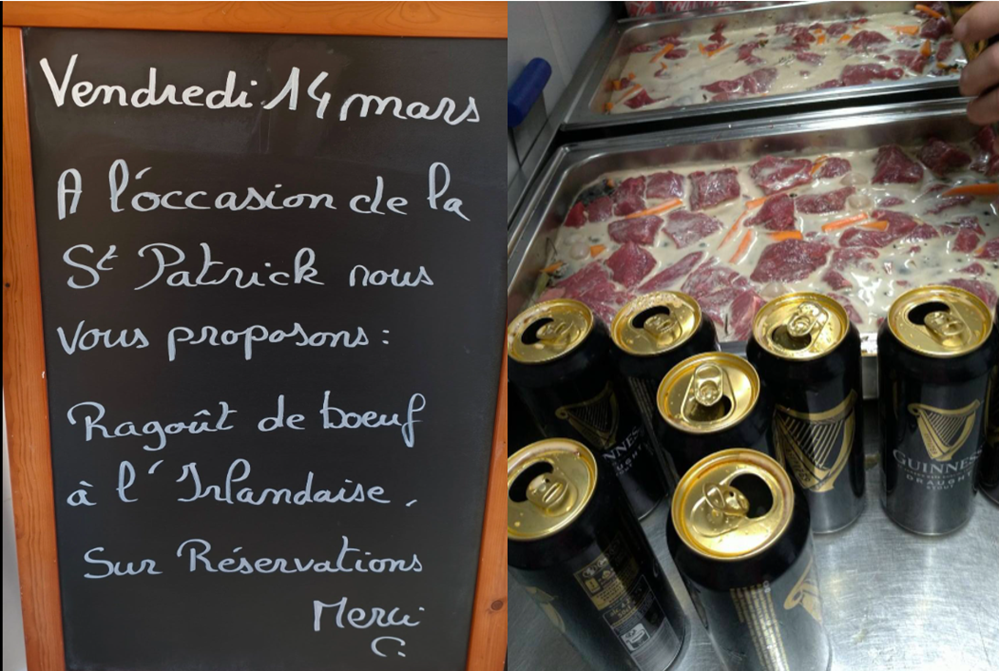 Vendredi 14 mars
A l'occasion de la
St Patrick nous
vous proposons :
Ragoût de boeuf
à l'Irlandaise.
Sur Réservations
Merci
C.
GUINNESS
GUINNESS
DRAUGHT
STOUT